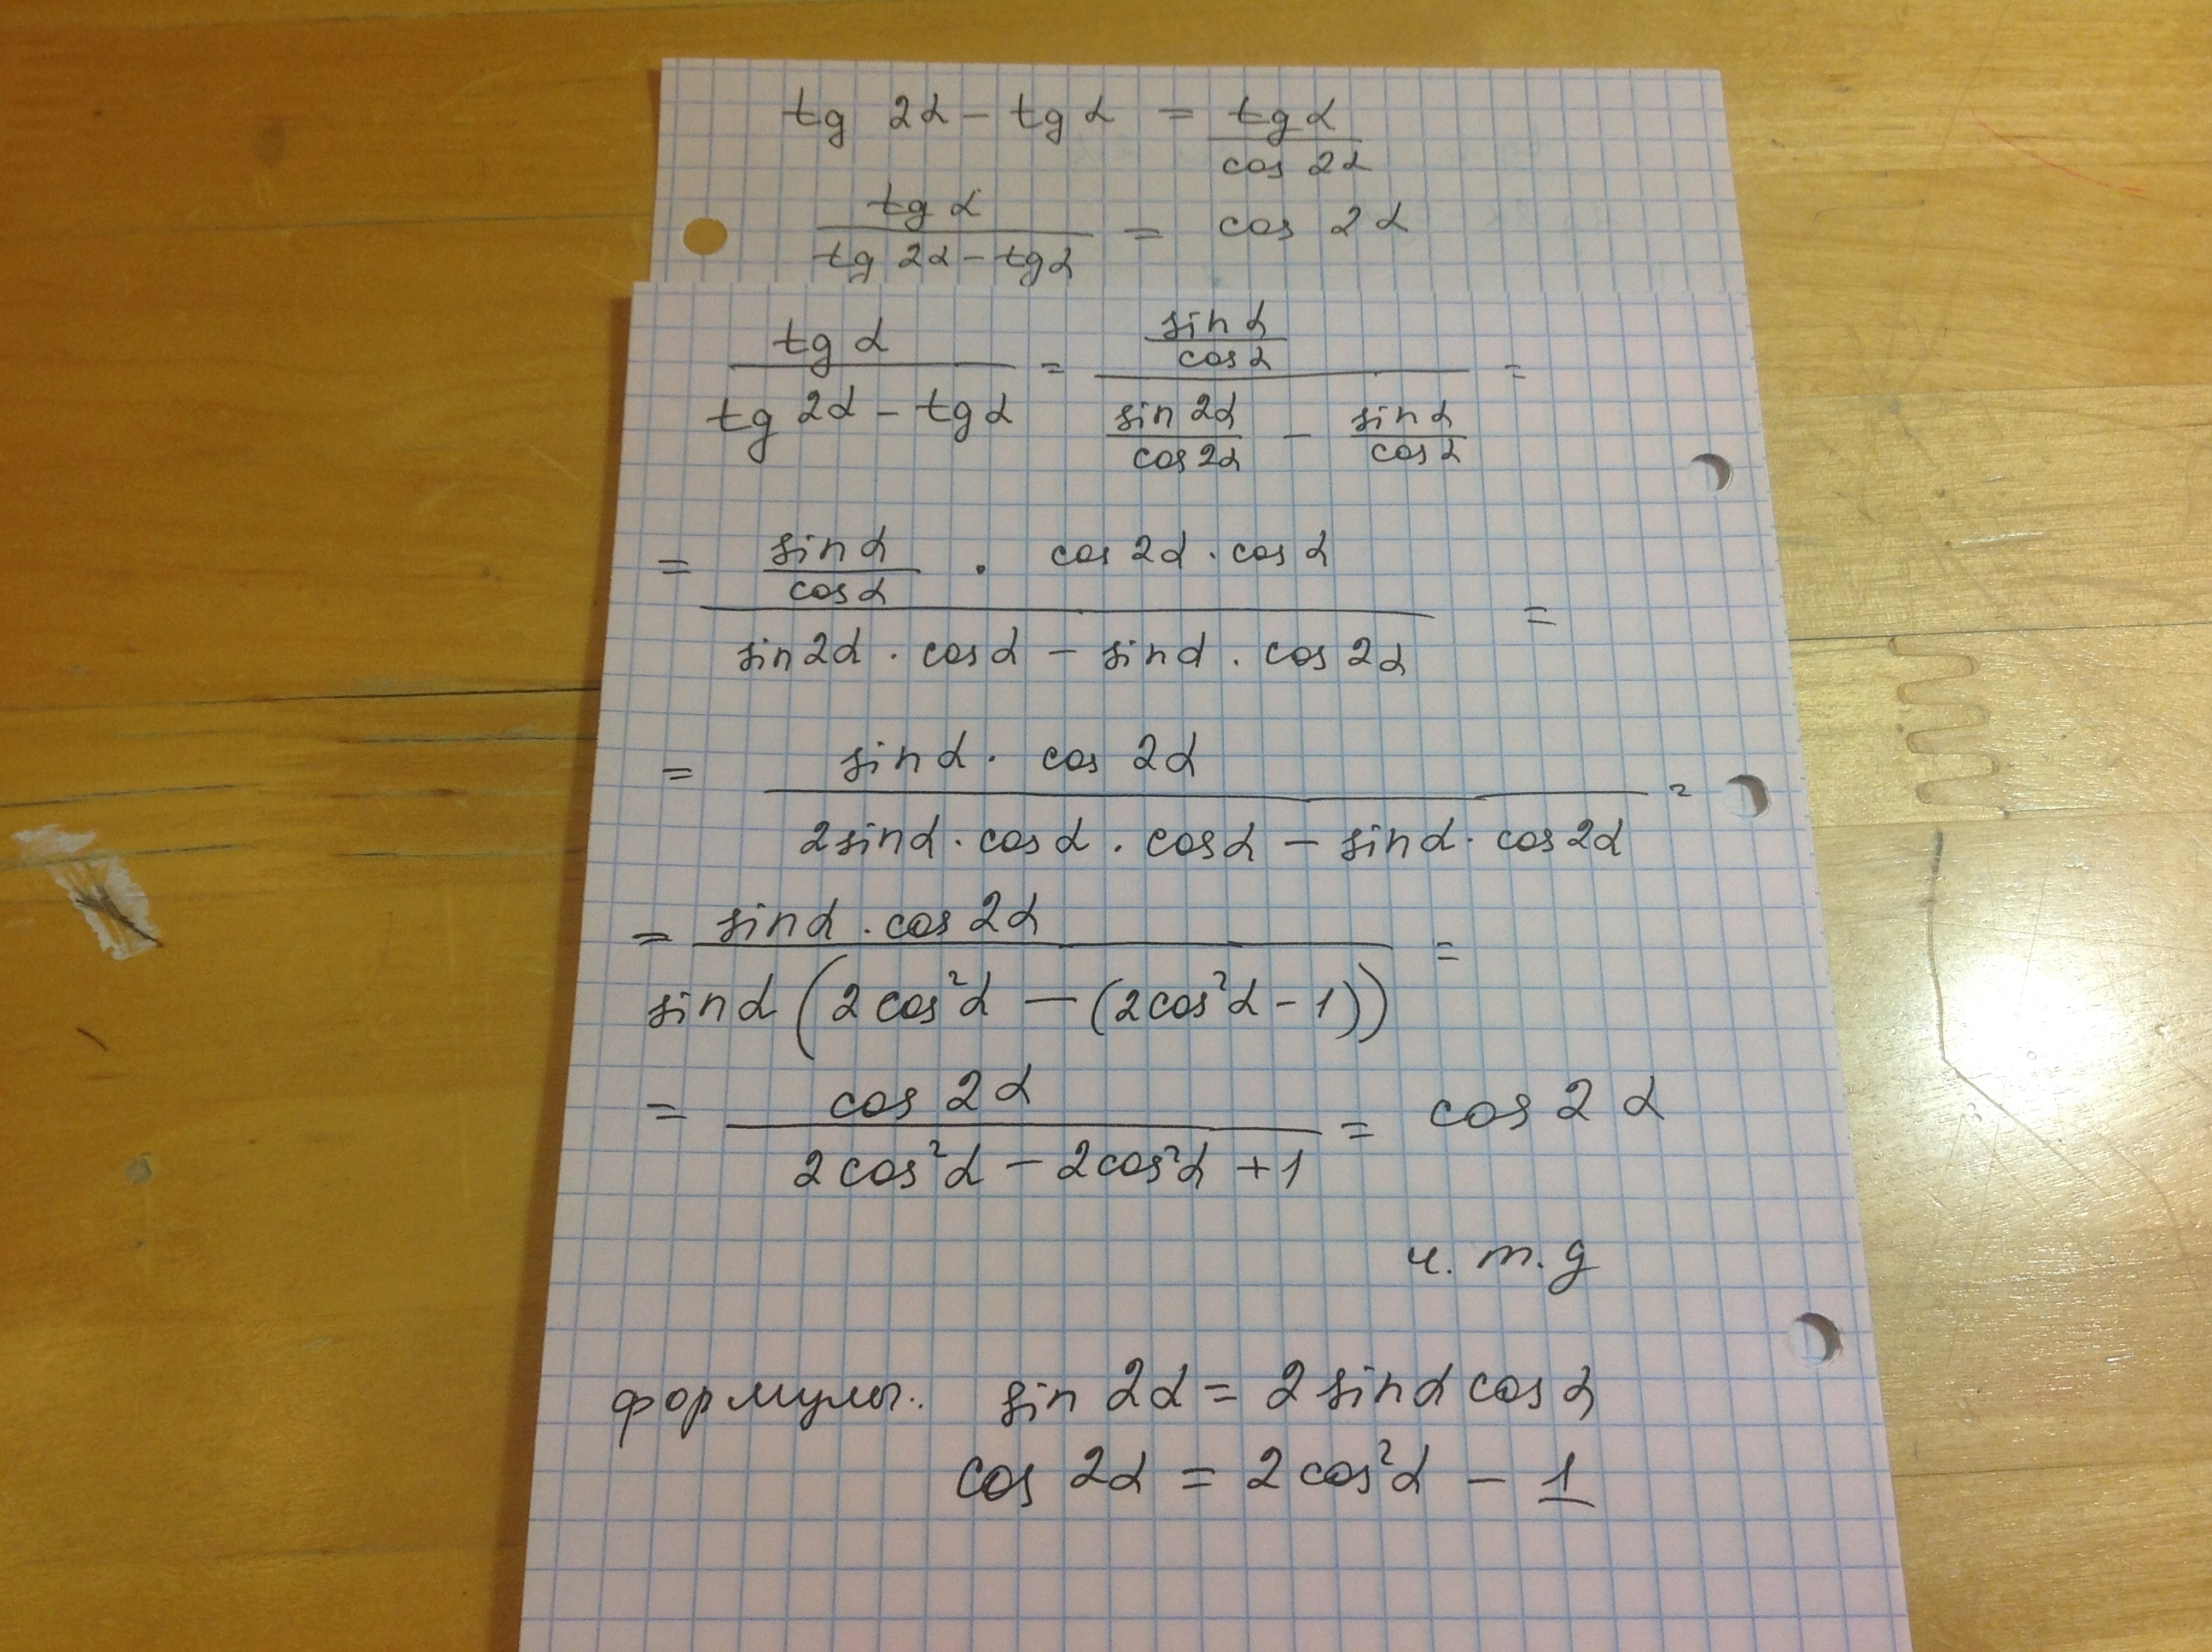 tg 2α - tg α = tg α / cos 2α
tg α / (tg 2α - tg α) = cos 2α
tg α / (tg 2α - tg α) = (sin α / cos α) / (sin 2α / cos 2α - sin α / cos α) =
= (sin α / cos α · cos 2α · cos α) / (sin 2α · cos α - sin α · cos 2α) =
= (sin α · cos 2α) / (2 sin α · cos α · cos α - sin α · cos 2α) =
= (sin α · cos 2α) / (sin α (2 cos²α - (2 cos²α - 1))) =
= cos 2α / (2 cos²α - 2 cos²α + 1) = cos 2α
ч. т. д
формулы: sin 2α = 2 sin α cos α
cos 2α = 2 cos²α - 1